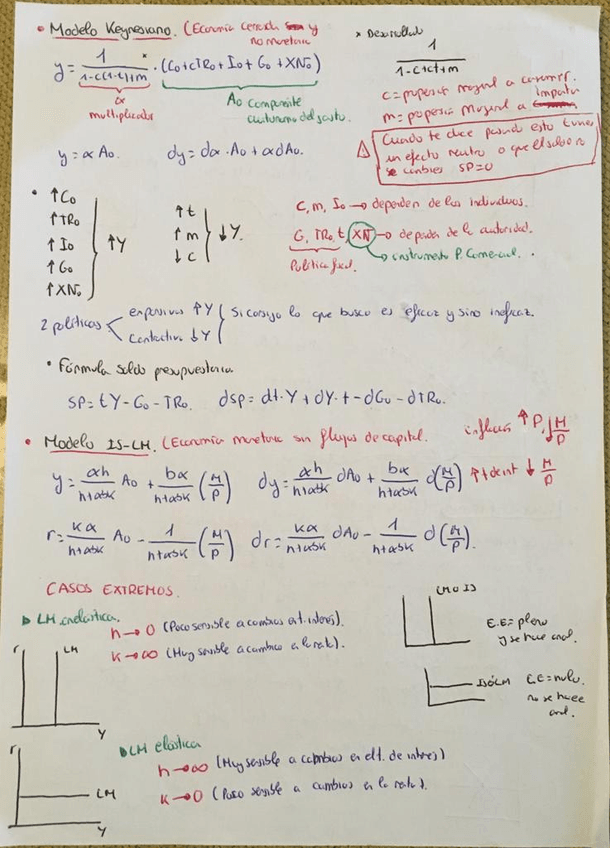 • Modelo Keynesiano. (Economía cerrada y
no monetaria
* Desarrollado
y = 1 / 1-c(1-t)+m · (C₀+cTR₀+I₀+G₀+XN₀)
1 / 1-c+ct+m
α
multiplicador
A₀ componente
autónomo del gasto.
c = propensión marginal a consumir.
m = propensión marginal a importar
y = α A₀.
dy = dα·A₀ + α dA₀.
Cuando te dice pasando esto tienes
un efecto neutro o que el saldo no
se cambies SP=0
• ↑C₀
↑TR₀
↑I₀
↑G₀
↑XN₀
↑Y
↑t
↑m
↓c
↓Y.
C, m, I₀ → dependen de los individuos.
G, TR₀, t, XN → depende de la autoridad.
Política fiscal.
→ instrumento P. Comercial.
2 políticas
expansivas ↑Y
Contractiva ↓Y
Si consigo lo que busco es eficaz y sino ineficaz.
• Fórmula saldo presupuestario
SP = tY - G₀ - TR₀.
dSP = dt·Y + dY·t - dG₀ - dTR₀.
• Modelo IS-LM. (Economía monetaria sin flujos de capital.
inflación ↑P, ↓M/P
y = αh / h+αbk A₀ + bα / h+αbk (M/P)
dy = αh / h+αbk dA₀ + bα / h+αbk d(M/P)
↑t de int ↓ M/P
r = kα / h+αbk A₀ - 1 / h+αbk (M/P)
dr = kα / h+αbk dA₀ - 1 / h+αbk d(M/P).
CASOS EXTREMOS.
LM inelástica.
h → 0 (Poco sensible a cambios en t. interés).
k → ∞ (Muy sensible a cambio a la renta).
r
LM
Y
LM o IS
E.E = pleno
y se hace anal.
IS ó LM
E.E = nulo.
no se hace
anal.
LM elástica
h → ∞ (Muy sensible a cambios en el t. de interés)
k → 0 (Poco sensible a cambios en la renta).
r
LM
Y